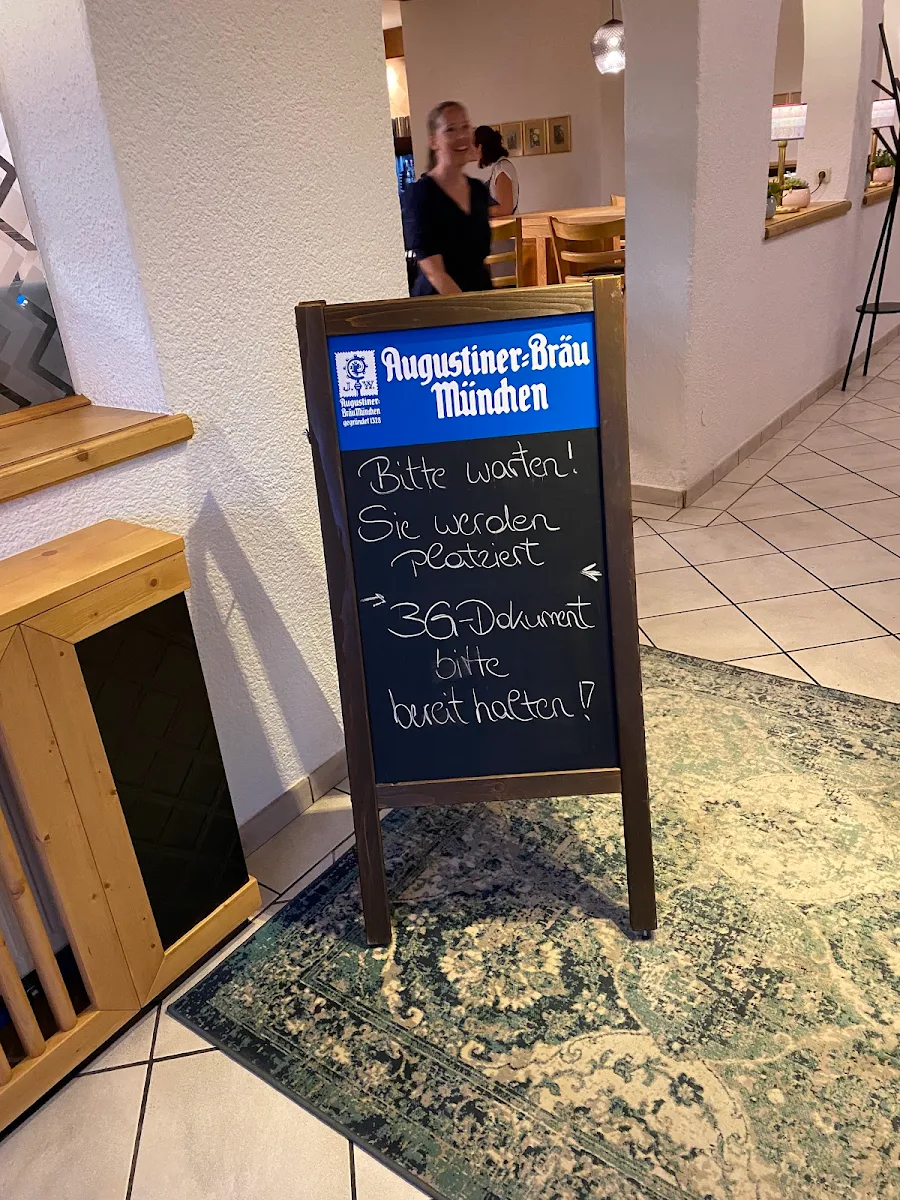 Augustiner-Bräu
München
J. W.
Augustiner-
Bräu München
gegründet 1328
Bitte warten!
Sie werden
platziert
→ ←
3G-Dokument
bitte
bereit halten!